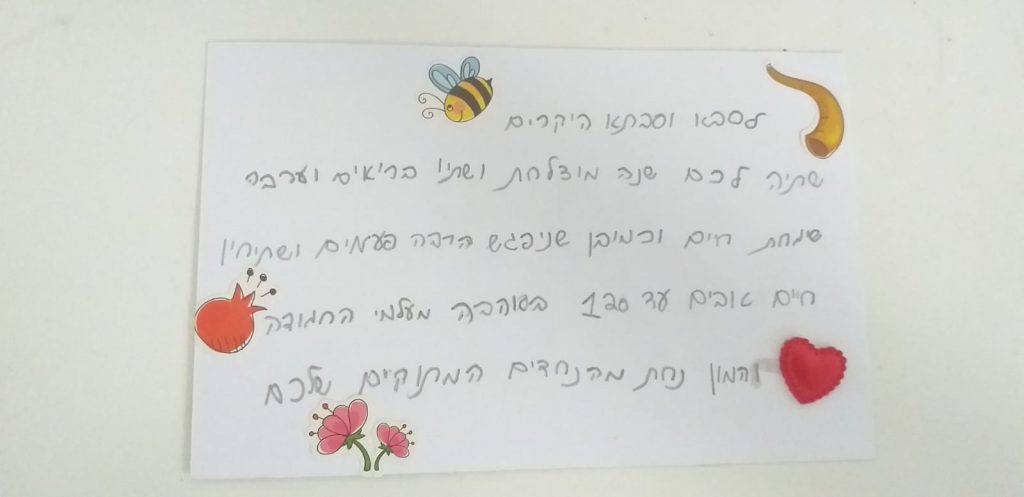 לסבא וסבתא היקרים
שתיה לכם שנה מוצלחת ושתיו בריאים וערבה
שמחת חיים וכמיבן שניפגש הרבה פעמים ושתיחין
חיים טובים עד 120 בשוהבה מעלמי החמודה
והמון נחת מהנחדים המתוקים שלכם